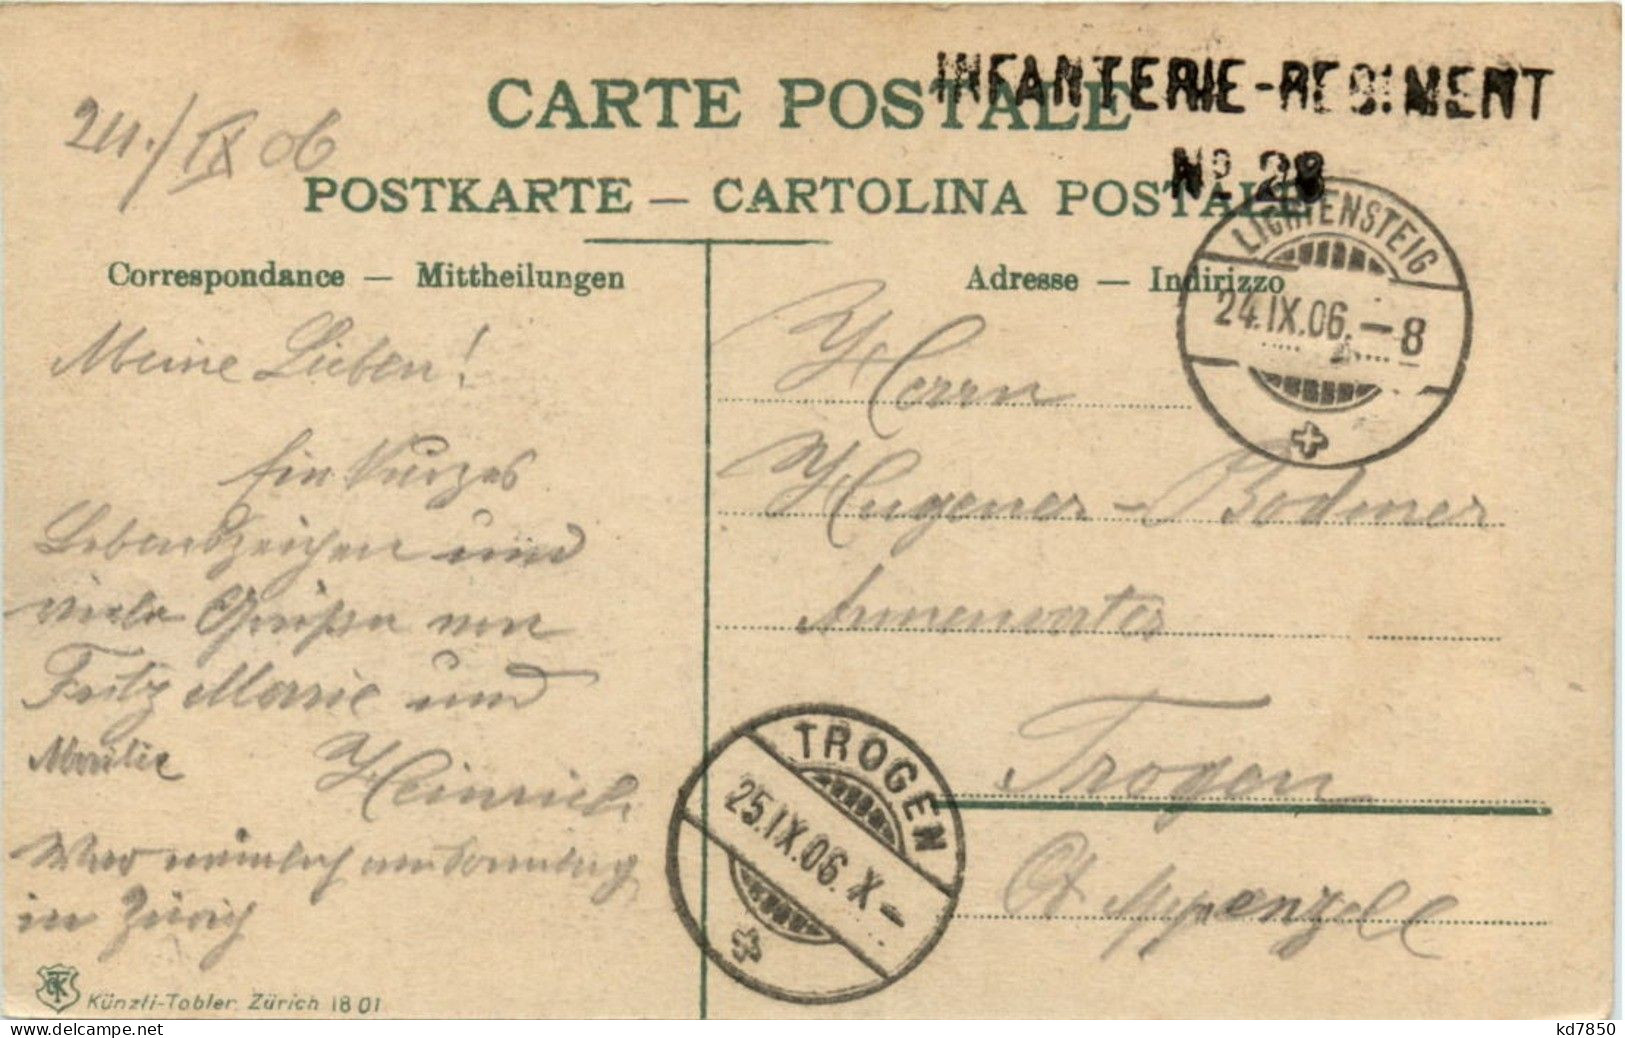 CARTE POSTALE
INFANTERIE-REGIMENT
No 28
24./IX 06
POSTKARTE — CARTOLINA POSTALE
Correspondance — Mittheilungen
Adresse — Indirizzo
LICHTENSTEIG
24.IX.06.–8
Meine Lieben!
Ein kurzes
Lebenszeichen und
viele Grüße von
Fritz Marie und
Heinrich
War nämlich am Sonntag
in Zürich
Herrn
Hugener-Bodmer
Trogen
Ct Appenzell
TROGEN
25.IX.06.X–
Künzli-Tobler. Zürich 1801
kd7850